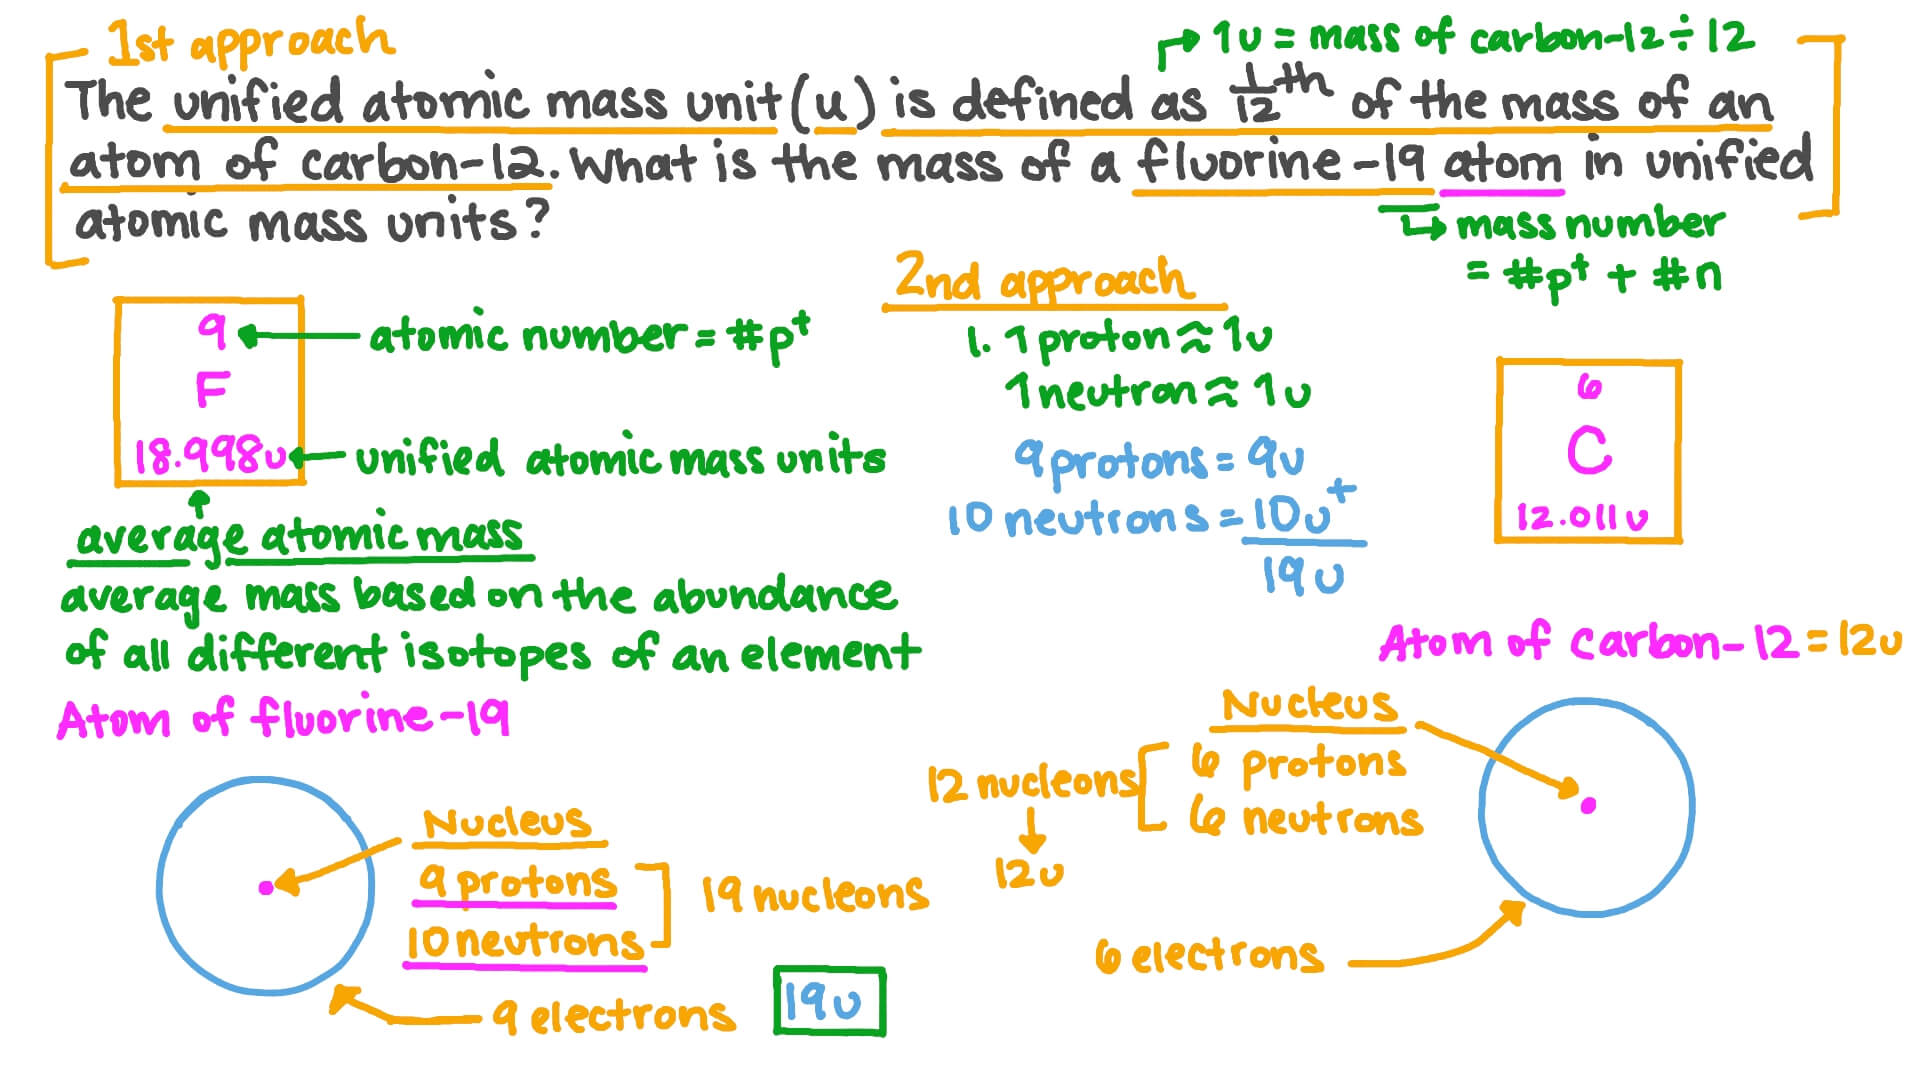 1st approach
1u = mass of carbon-12÷12
The unified atomic mass unit (u) is defined as 1/12th of the mass of an
atom of carbon-12. What is the mass of a fluorine-19 atom in unified
atomic mass units?
mass number
= #p+ + #n
9
F
18.998u
atomic number = #p+
unified atomic mass units
average atomic mass
average mass based on the abundance
of all different isotopes of an element
2nd approach
1. 1 proton ≈ 1u
1 neutron ≈ 1u
9 protons = 9u
10 neutrons = 10u +
19u
6
C
12.011u
Atom of fluorine-19
Nucleus
9 protons
10 neutrons
19 nucleons
9 electrons
19u
Atom of carbon-12 = 12u
Nucleus
12 nucleons
6 protons
6 neutrons
12u
6 electrons